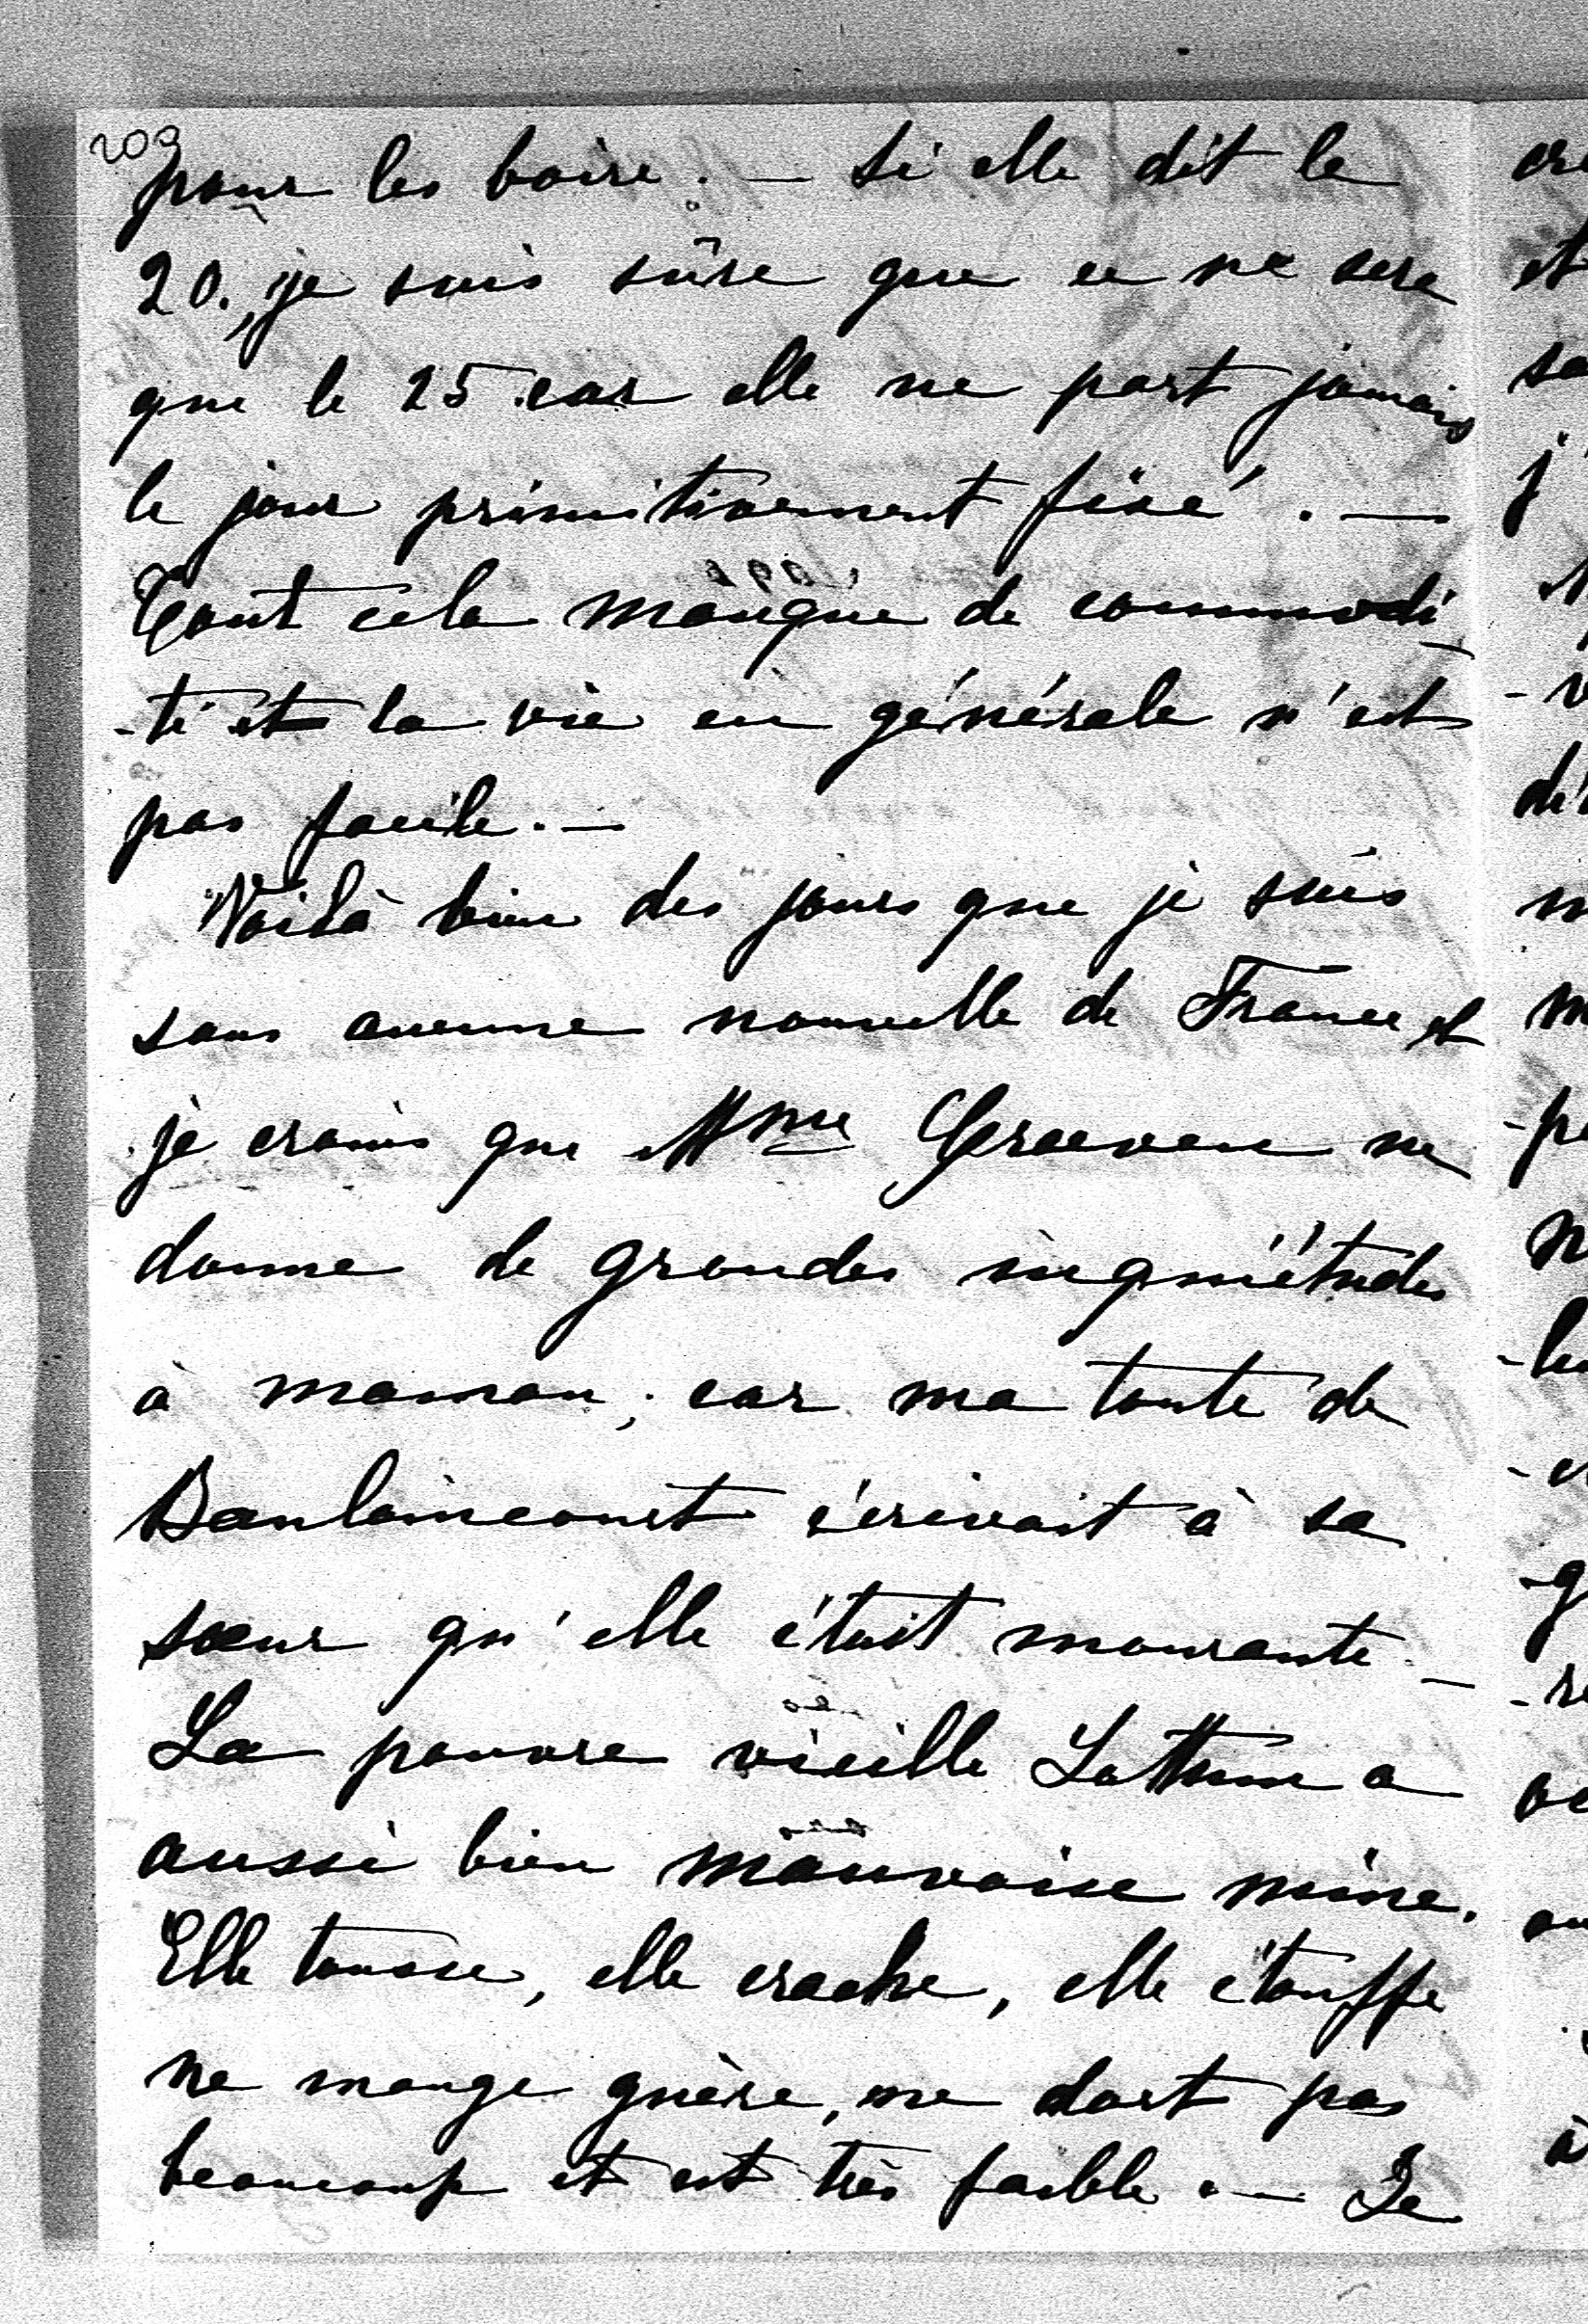 209
pour les boire. — Si elle dit le
20, je suis sûre que ce ne sera
que le 25 car elle ne part jamais
le jour primitivement fixé. —
Tout cela manque de commodi
-té et la vie en générale n'est
pas facile. —
Voilà bien des jours que je suis
sans aucune nouvelle de France et
je crains que Mme ne
donne de grandes inquiétudes
à maman; car ma tante de
Baulaincourt écrivait à sa
sœur qu'elle était mourante —
La pauvre vieille a
aussi bien mauvaise mine.
Elle tousse, elle crache, elle étouffe
ne mange guère, ne dort pas
beaucoup et est très faible. — Je